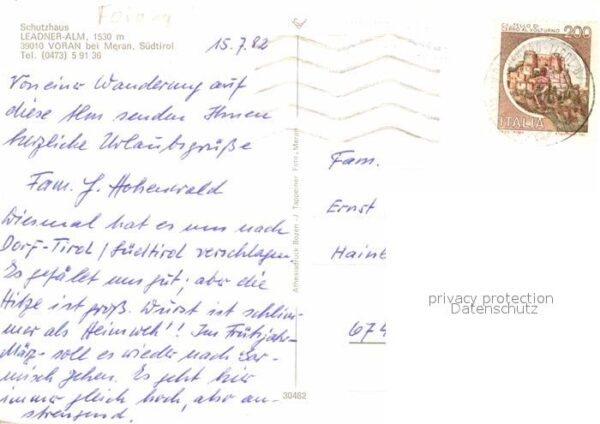 Schutzhaus
LEADNER-ALM, 1530 m
39010 VORAN bei Meran, Südtirol
Tel. (0473) 5 91 36
15.7.82
Von einer Wanderung auf
diese Alm senden Ihnen
herzliche Urlaubsgrüße
Fam. J. Hohenwald
Diesmal hat es uns nach
Dorf-Tirol/Südtirol verschlagen
Es gefällt uns gut; aber die
Hitze ist groß. Durst ist schlim-
mer als Heimweh!! Im Frühjahr
März soll es wieder nach Gar-
misch gehen. Es geht hier
immer gleich hoch, also an-
strengend.
Athesiadruck Bozen - J. Tappeiner Foto, Meran
30482
CASTELLO DI
CERRO AL VOLTURNO
200
ITALIA
Fam.
Ernst
Hain
674
privacy protection
Datenschutz